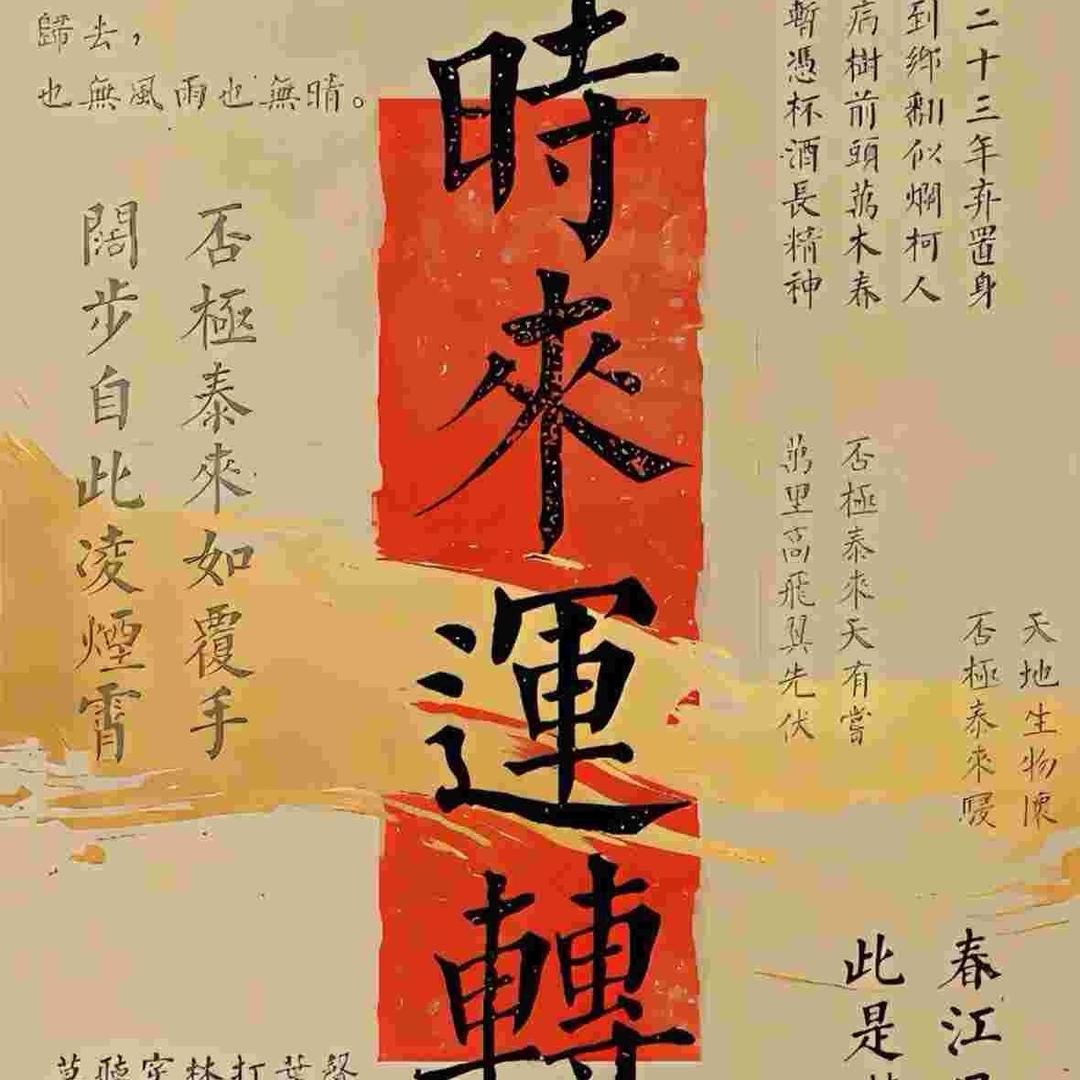 時來運轉
歸去，
也無風雨也無晴。
否極泰來如覆手
闊步自此凌煙霄
二十三年弃置身
到鄉翻似爛柯人
病樹前頭萬木春
暫憑杯酒長精神
否極泰來天有嘗
萬里高飛翼先伏
天地生物
否極泰來
春江
此是
莫聽穿林打葉聲